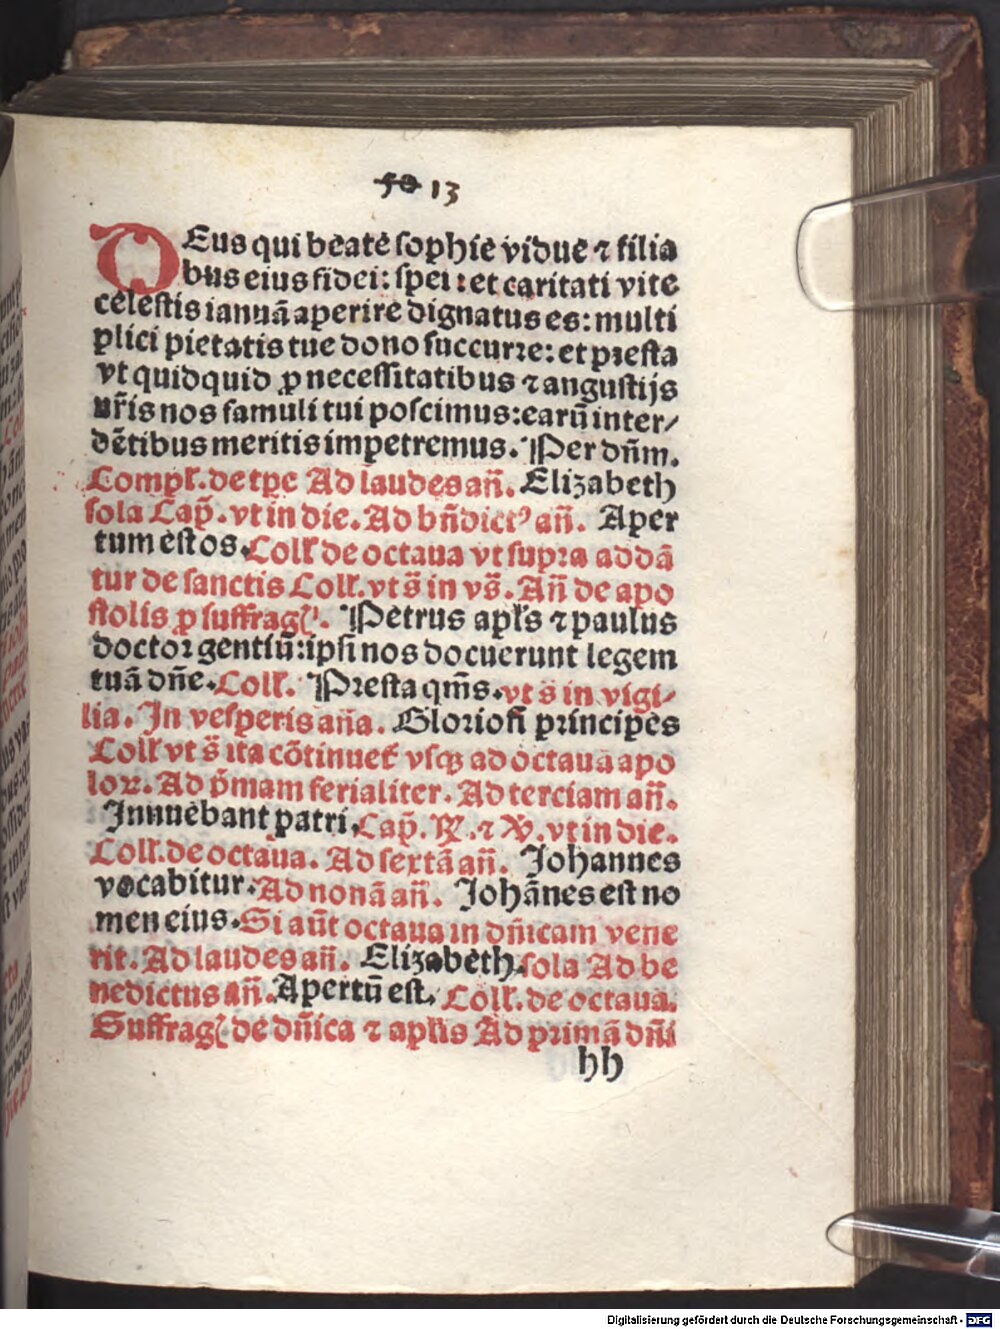 50 13
DEus qui beate sophie vidue ⁊ filia
bus eius fidei: spei: et caritati vite
celestis ianuã aperire dignatus es: multi
plici pietatis tue dono succurre: et presta
vt quidquid ꝓ necessitatibus ⁊ angustijs
nr̃is nos famuli tui poscimus: earũ inter⸗
dẽtibus meritis impetremus. Per dñm.
Compł. de tpe Ad laudes añ. Elizabeth
sola Cap̃. vt in die. Ad bñdictꝰ añ. Aper
tum est os. Coll̃ de octaua vt supra addã
tur de sanctis Coll̃. vt s̃ in vs̃. Añ de apo
stolis ꝑ suffrag̃. Petrus apl̃s ⁊ paulus
doctor gentiũ: ipsi nos docuerunt legem
tuã dñe. Coll̃. Presta qm̃s. vt s̃ in vigi⸗
lia. In vesperis aña. Gloriosi principes
Coll̃ vt s̃ ita cõtinuet᷑ vsqꝫ ad octaua apo
loꝝ. Ad p̃mam ferialiter. Ad terciam añ.
Innuebant patri. Cap̃. ℟. ⁊ ℣. vt in die.
Coll. de octaua. Ad sextã añ. Johannes
vocabitur. Ad nonã añ. Johãnes est no
men eius. Si aũt octaua in dñicam vene
rit. Ad laudes añ. Elizabeth. sola Ad be
nedictus añ. Apertũ est. Coll̃. de octaua.
Suffrag̃ de dñica ⁊ apl̃is Ad primã dñi
hh
Digitalisierung gefördert durch die Deutsche Forschungsgemeinschaft - DFG